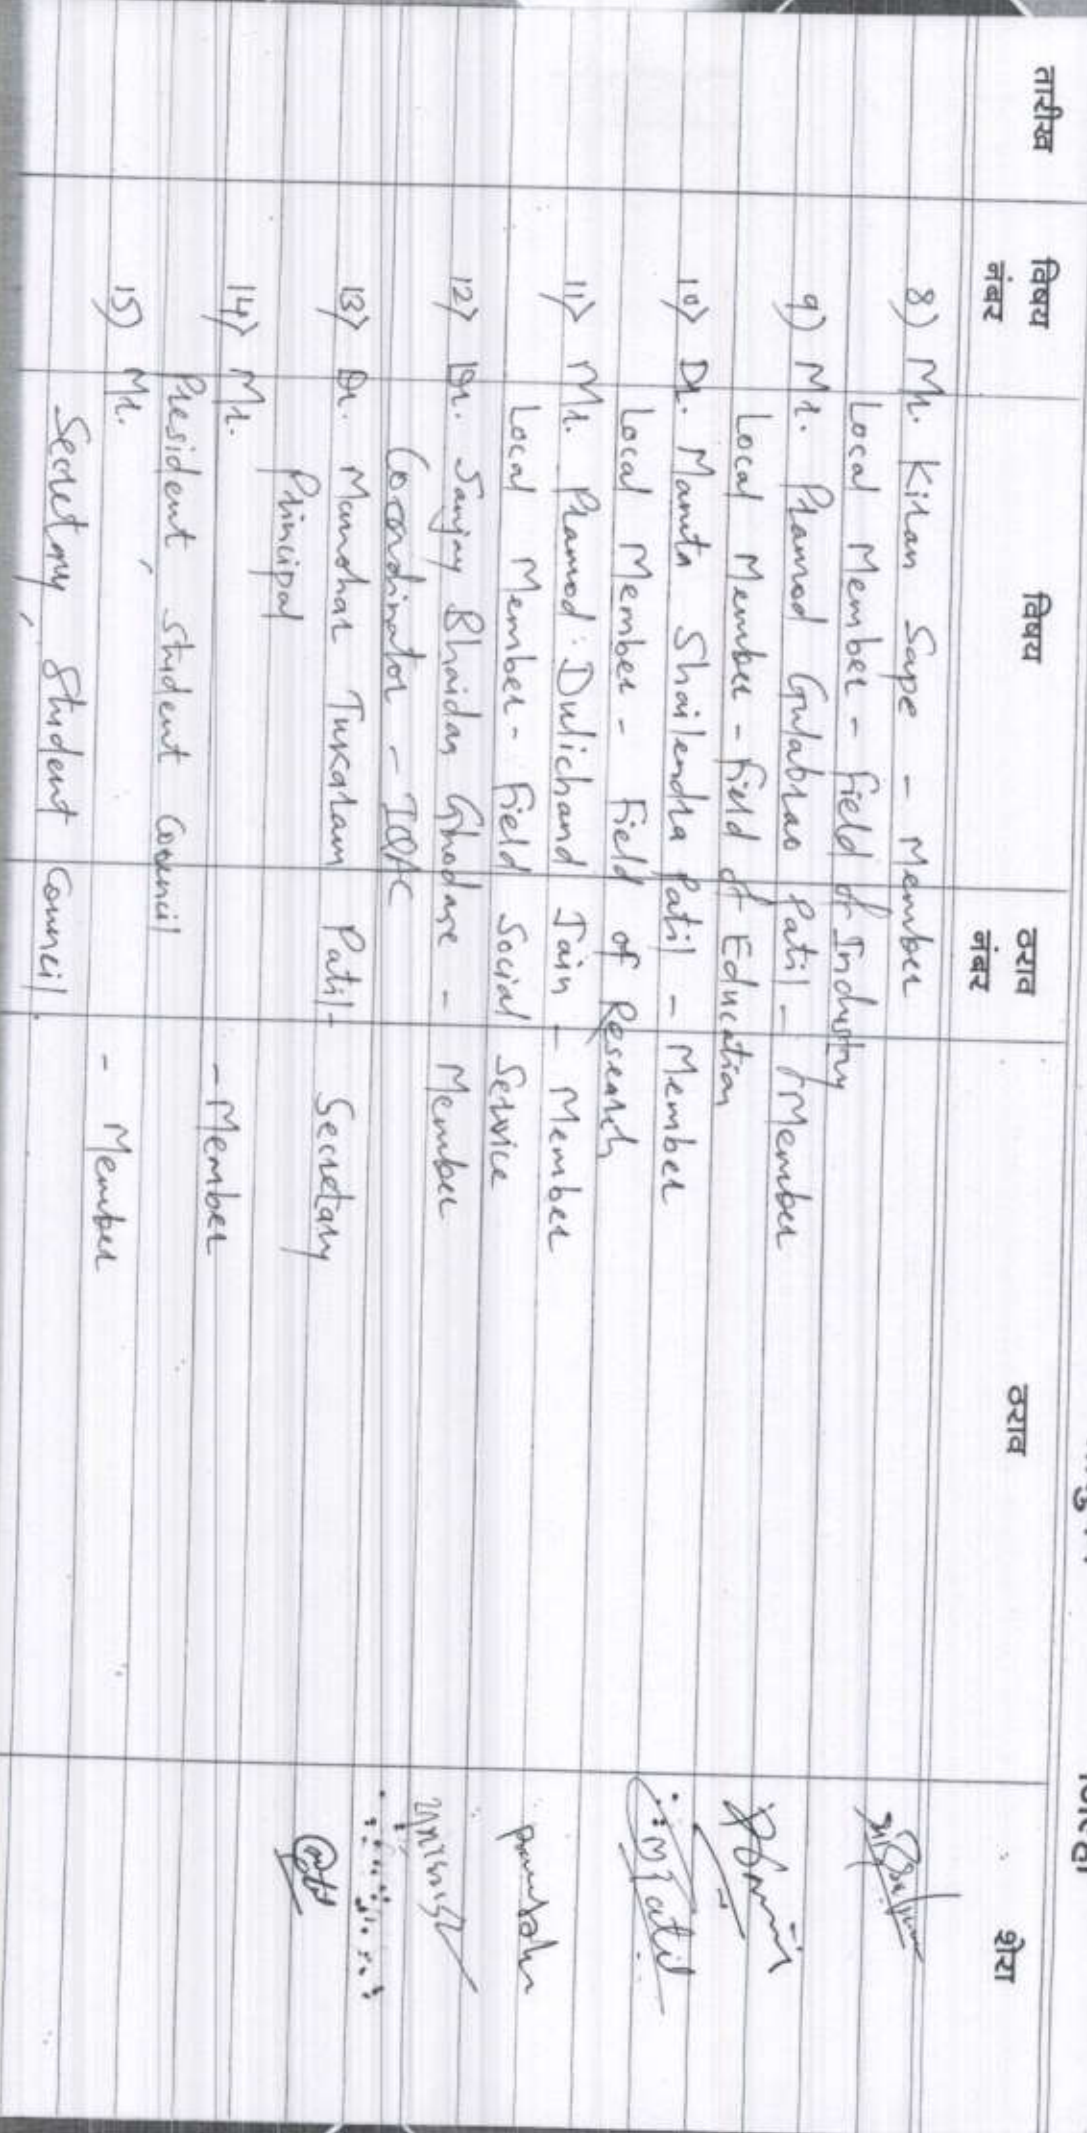 तारीख विषय नंबर विषय ठराव नंबर ठराव शेरा
8) Mr. Kiran Sape - Member
Local Member - Field of Industry
9) Mr. Pramod Gulabrao Patil - Member
Local Member - Field of Education
10) Dr. Mamta Shailendra Patil - Member
Local Member - Field of Research
11) Mr. Pramod Dulichand Jain - Member
Local Member - Field Social Service
12) Dr. Sanjay Bhaidas Ghodare - Member
Coordinator - IQAC
13) Dr. Manohar Tukaram Patil - Secretary
Principal
14) Mr. - Member
President, Student Council
15) Mr. - Member
Secretary, Student Council.